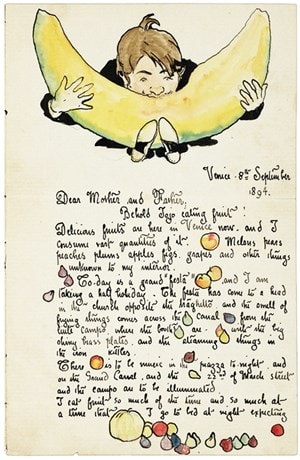 Venice 8th September
1894.
Dear Mother and Father,
Behold Jojo eating fruit!
Delicious fruits are here in Venice now. and I
consume vast quantities of it. Melons pears
peaches plums apples figs, grapes and other things
unknown to my interior.
To-day is a grand "festa" and I am
taking a half holiday. The festa has come to a head
in the church opposite the traghetto and the smell of
frying things comes across the canal from the
little campo where the booths are with the big
shiny brass plates and the steaming things in
the iron kettles.
There is to be music in the piazza to-night and
on the Grand Canal, and the 22nd of March street
and the campo are to be illuminated.
I eat fruit so much of the time and so much at
a time that I go to bed at night expecting